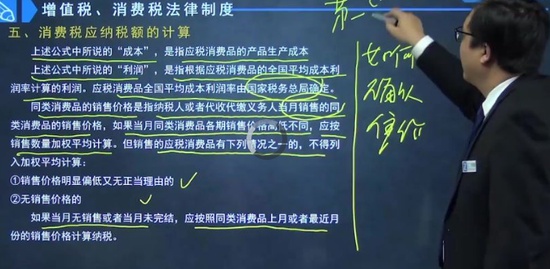 增值税、消费税法律制度
五、消费税应纳税额的计算
上述公式中所说的“成本”，是指应税消费品的产品生产成本
上述公式中所说的“利润”，是指根据应税消费品的全国平均成本利
润率计算的利润。应税消费品全国平均成本利润率由国家税务总局确定。
同类消费品的销售价格是指纳税人或者代收代缴义务人当月销售的同
类消费品的销售价格，如果当月同类消费品各期销售价格高低不同，应按
销售数量加权平均计算。但销售的应税消费品有下列情况之一的，不得列
入加权平均计算：
①销售价格明显偏低又无正当理由的
②无销售价格的
如果当月无销售或者当月未完结，应按照同类消费品上月或者最近月
份的销售价格计算纳税。
第一
如何
确认
售价